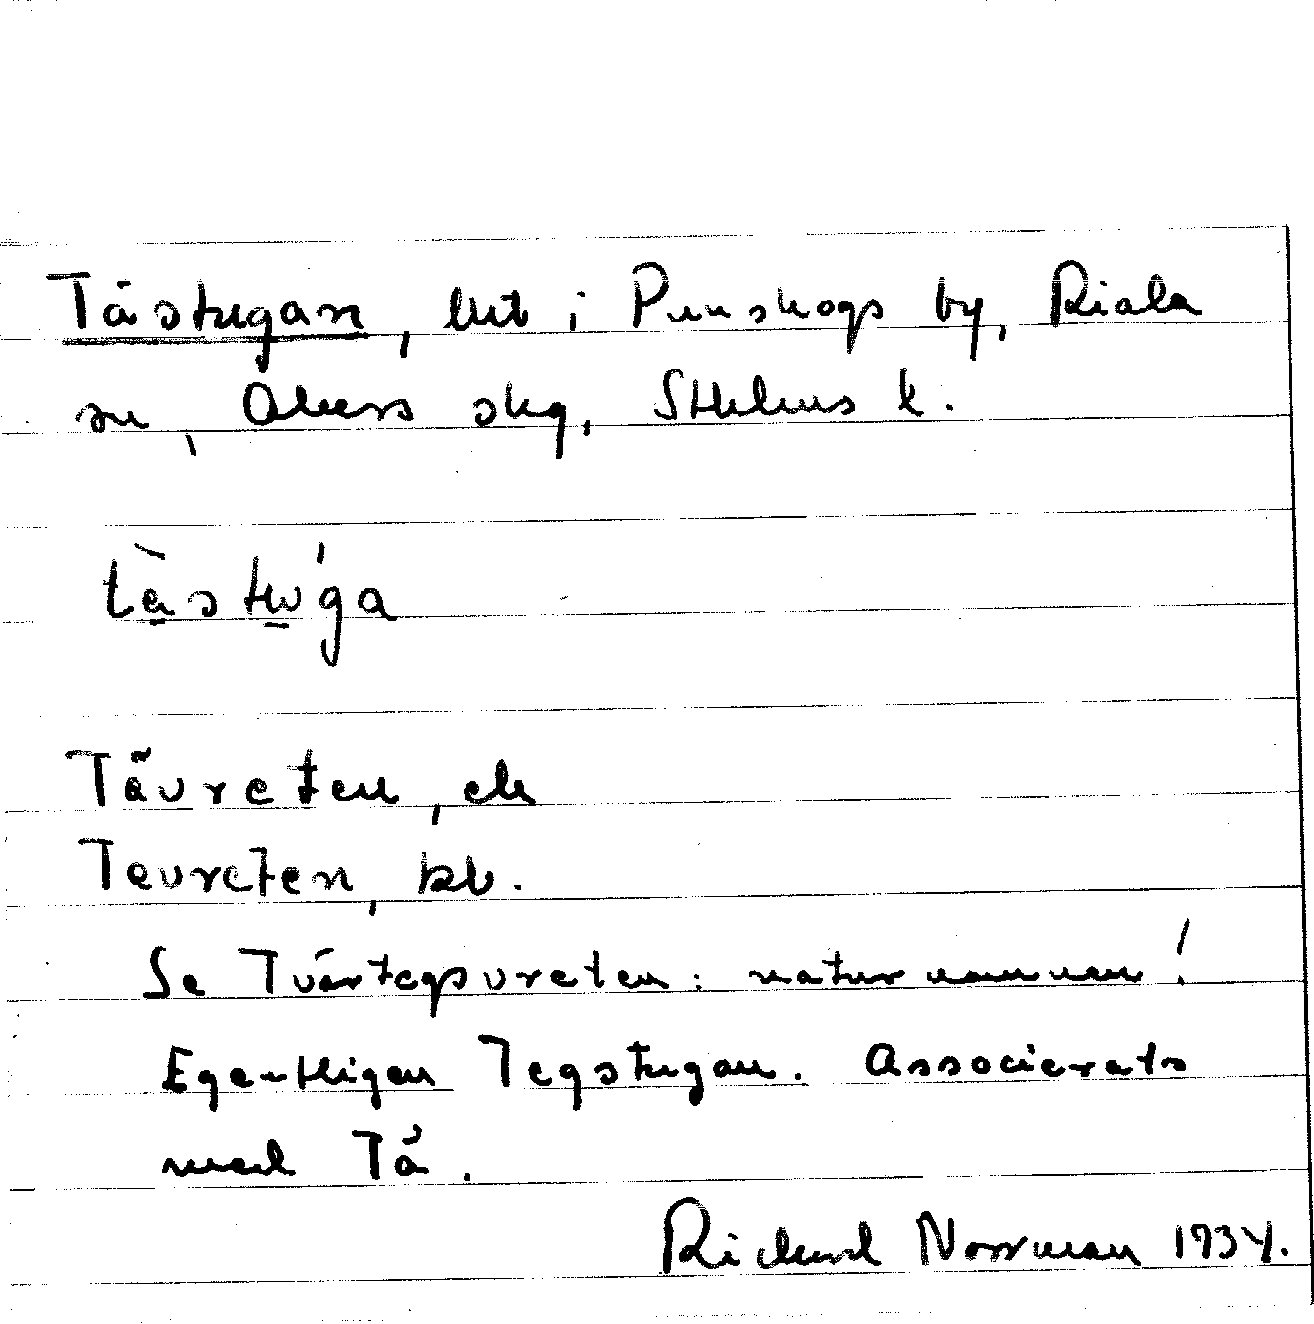 Tåstugan, lht i Penskogs by, Riala
sn, Åkers skg, Sthlms l.
tàstu'ga
Tåvreten, ek
Tevreten, kb.
Se Tvärtegsvreten: naturnamnen!
Egentligen Tegstugan. Associerats
med Tå.
Richard Norrman 1934.